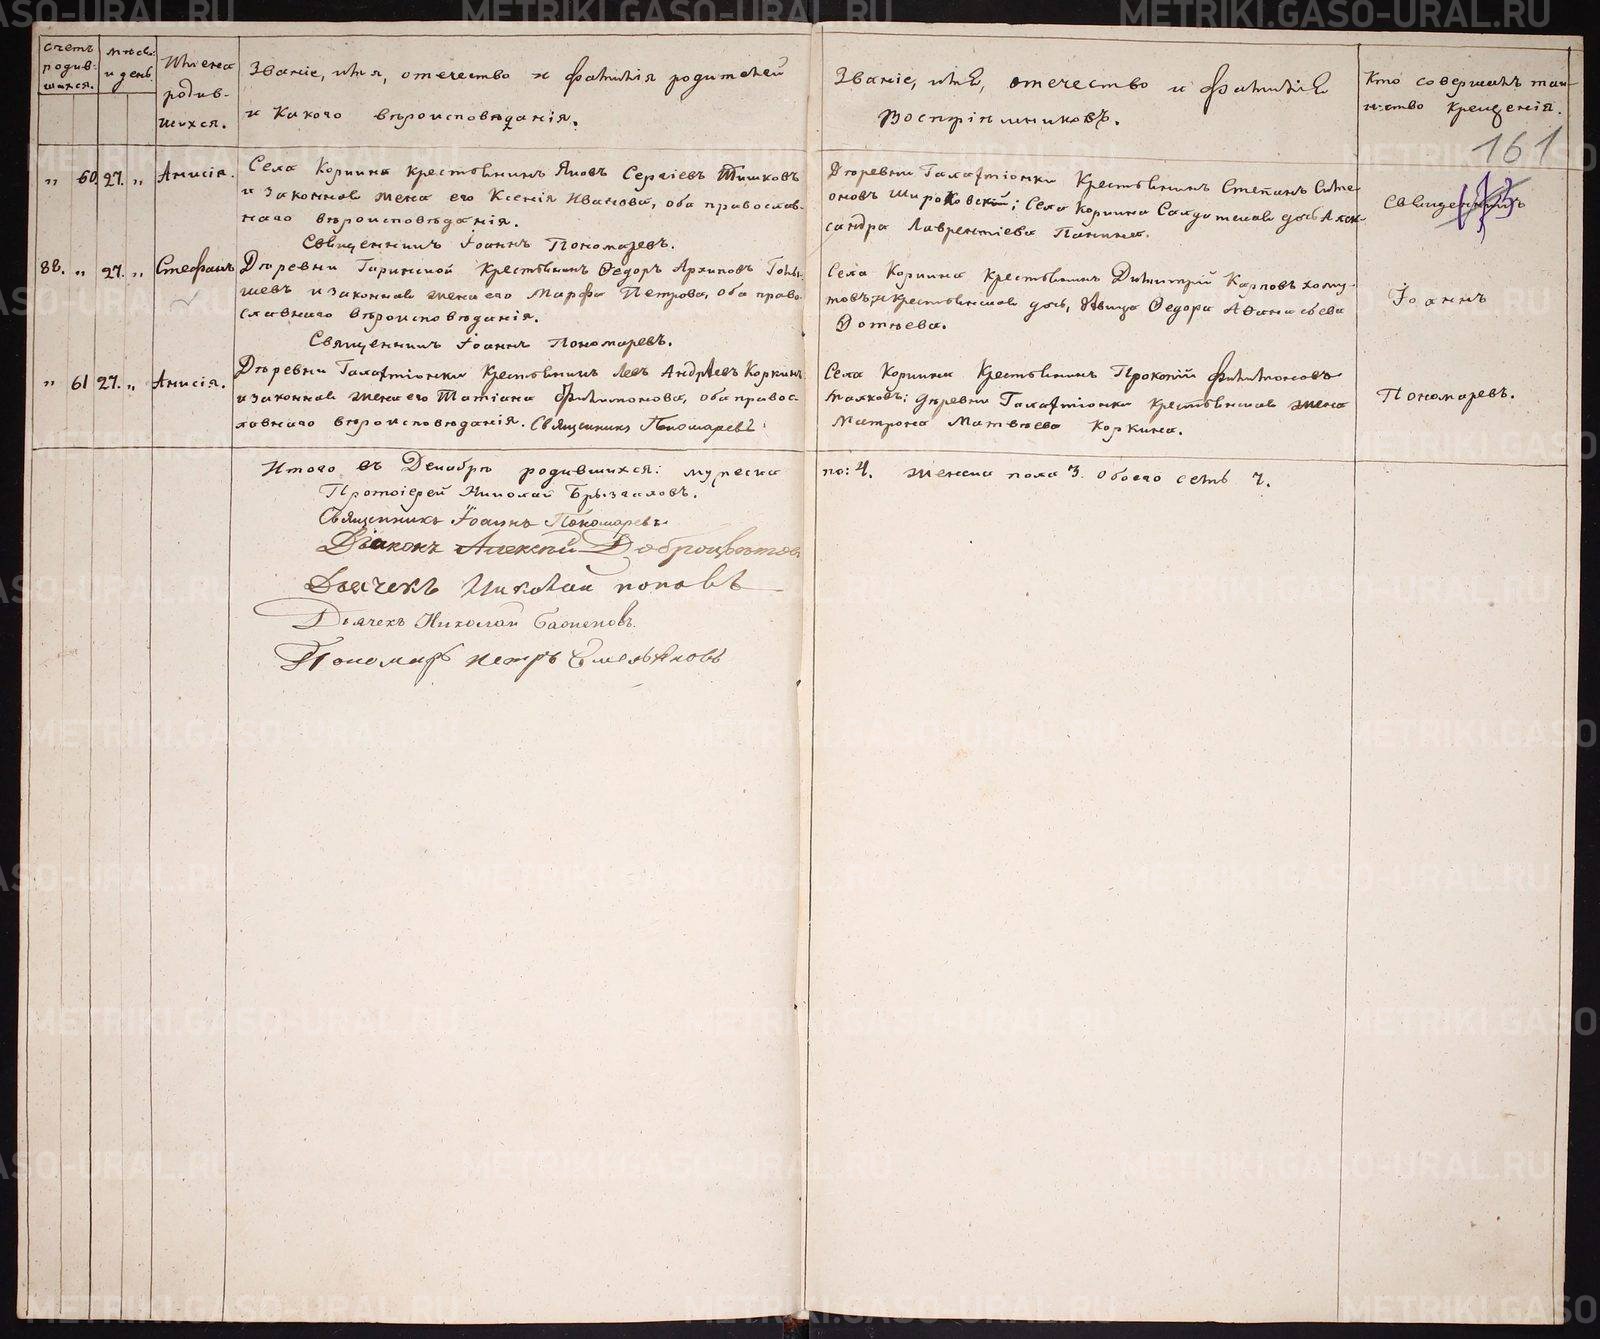 Счетъ родив- шихся.
Мѣсяц. и день.
Имена родив- шихся.
Званіе, имя, отечество и фамилія родителей
и какого вѣроисповѣданія.
Званіе, имя, отечество и фамилія
воспріемниковъ.
Кто совершалъ таи-
нство крещенія.
161
„ 60. 27. „ Анисія.
Села Коркина крестьянинъ Яковъ Сергіевъ Тишковъ
и законная жена его Ксенія Иванова, оба православ-
наго вѣроисповѣданія.
Священникъ Іоаннъ Пономаревъ.
Деревни Галахтіонки крестьянинъ Степанъ Симе-
оновъ Широковскій; Села Коркина Солдатская дочь Алек-
сандра Лаврентіева Панина.
Священникъ
88. „ 27. „ Стефанъ
Деревни Гаринской крестьянинъ Ѳедоръ Архиповъ Голы-
шевъ и законная жена его Марфа Петрова, оба право-
славнаго вѣроисповѣданія.
Священникъ Іоаннъ Пономаревъ.
Села Коркина крестьянинъ Димитрій Карповъ Хому-
товъ; и крестьянская дочь, дѣвица Ѳедора Аѳанасьева
Іоаннъ
„ 61 27. „ Анисія.
Деревни Галахтіонки крестьянинъ Левъ Андреевъ Коркинъ
и законная жена его Татіана Филимонова, оба правос-
лавнаго вѣроисповѣданія. Священникъ Пономаревъ
Села Коркина крестьянинъ Прокопій Филимоновъ
деревни Галахтіонки крестьянская жена
Матрона Матвѣева Коркина.
Пономаревъ.
Итого въ Декабрѣ родившихся: мужеска по: 4. женска пола 3. обоего семь 7.
Протоіерей Николай Брызгаловъ.
Священникъ Іоаннъ Пономаревъ
Діаконъ Алексій Доброцвѣтовъ
Дьячекъ Николай Поповъ
Дьячекъ Николай
Пономарь Петръ Емельяновъ
METRIKI.GASO-URAL.RU